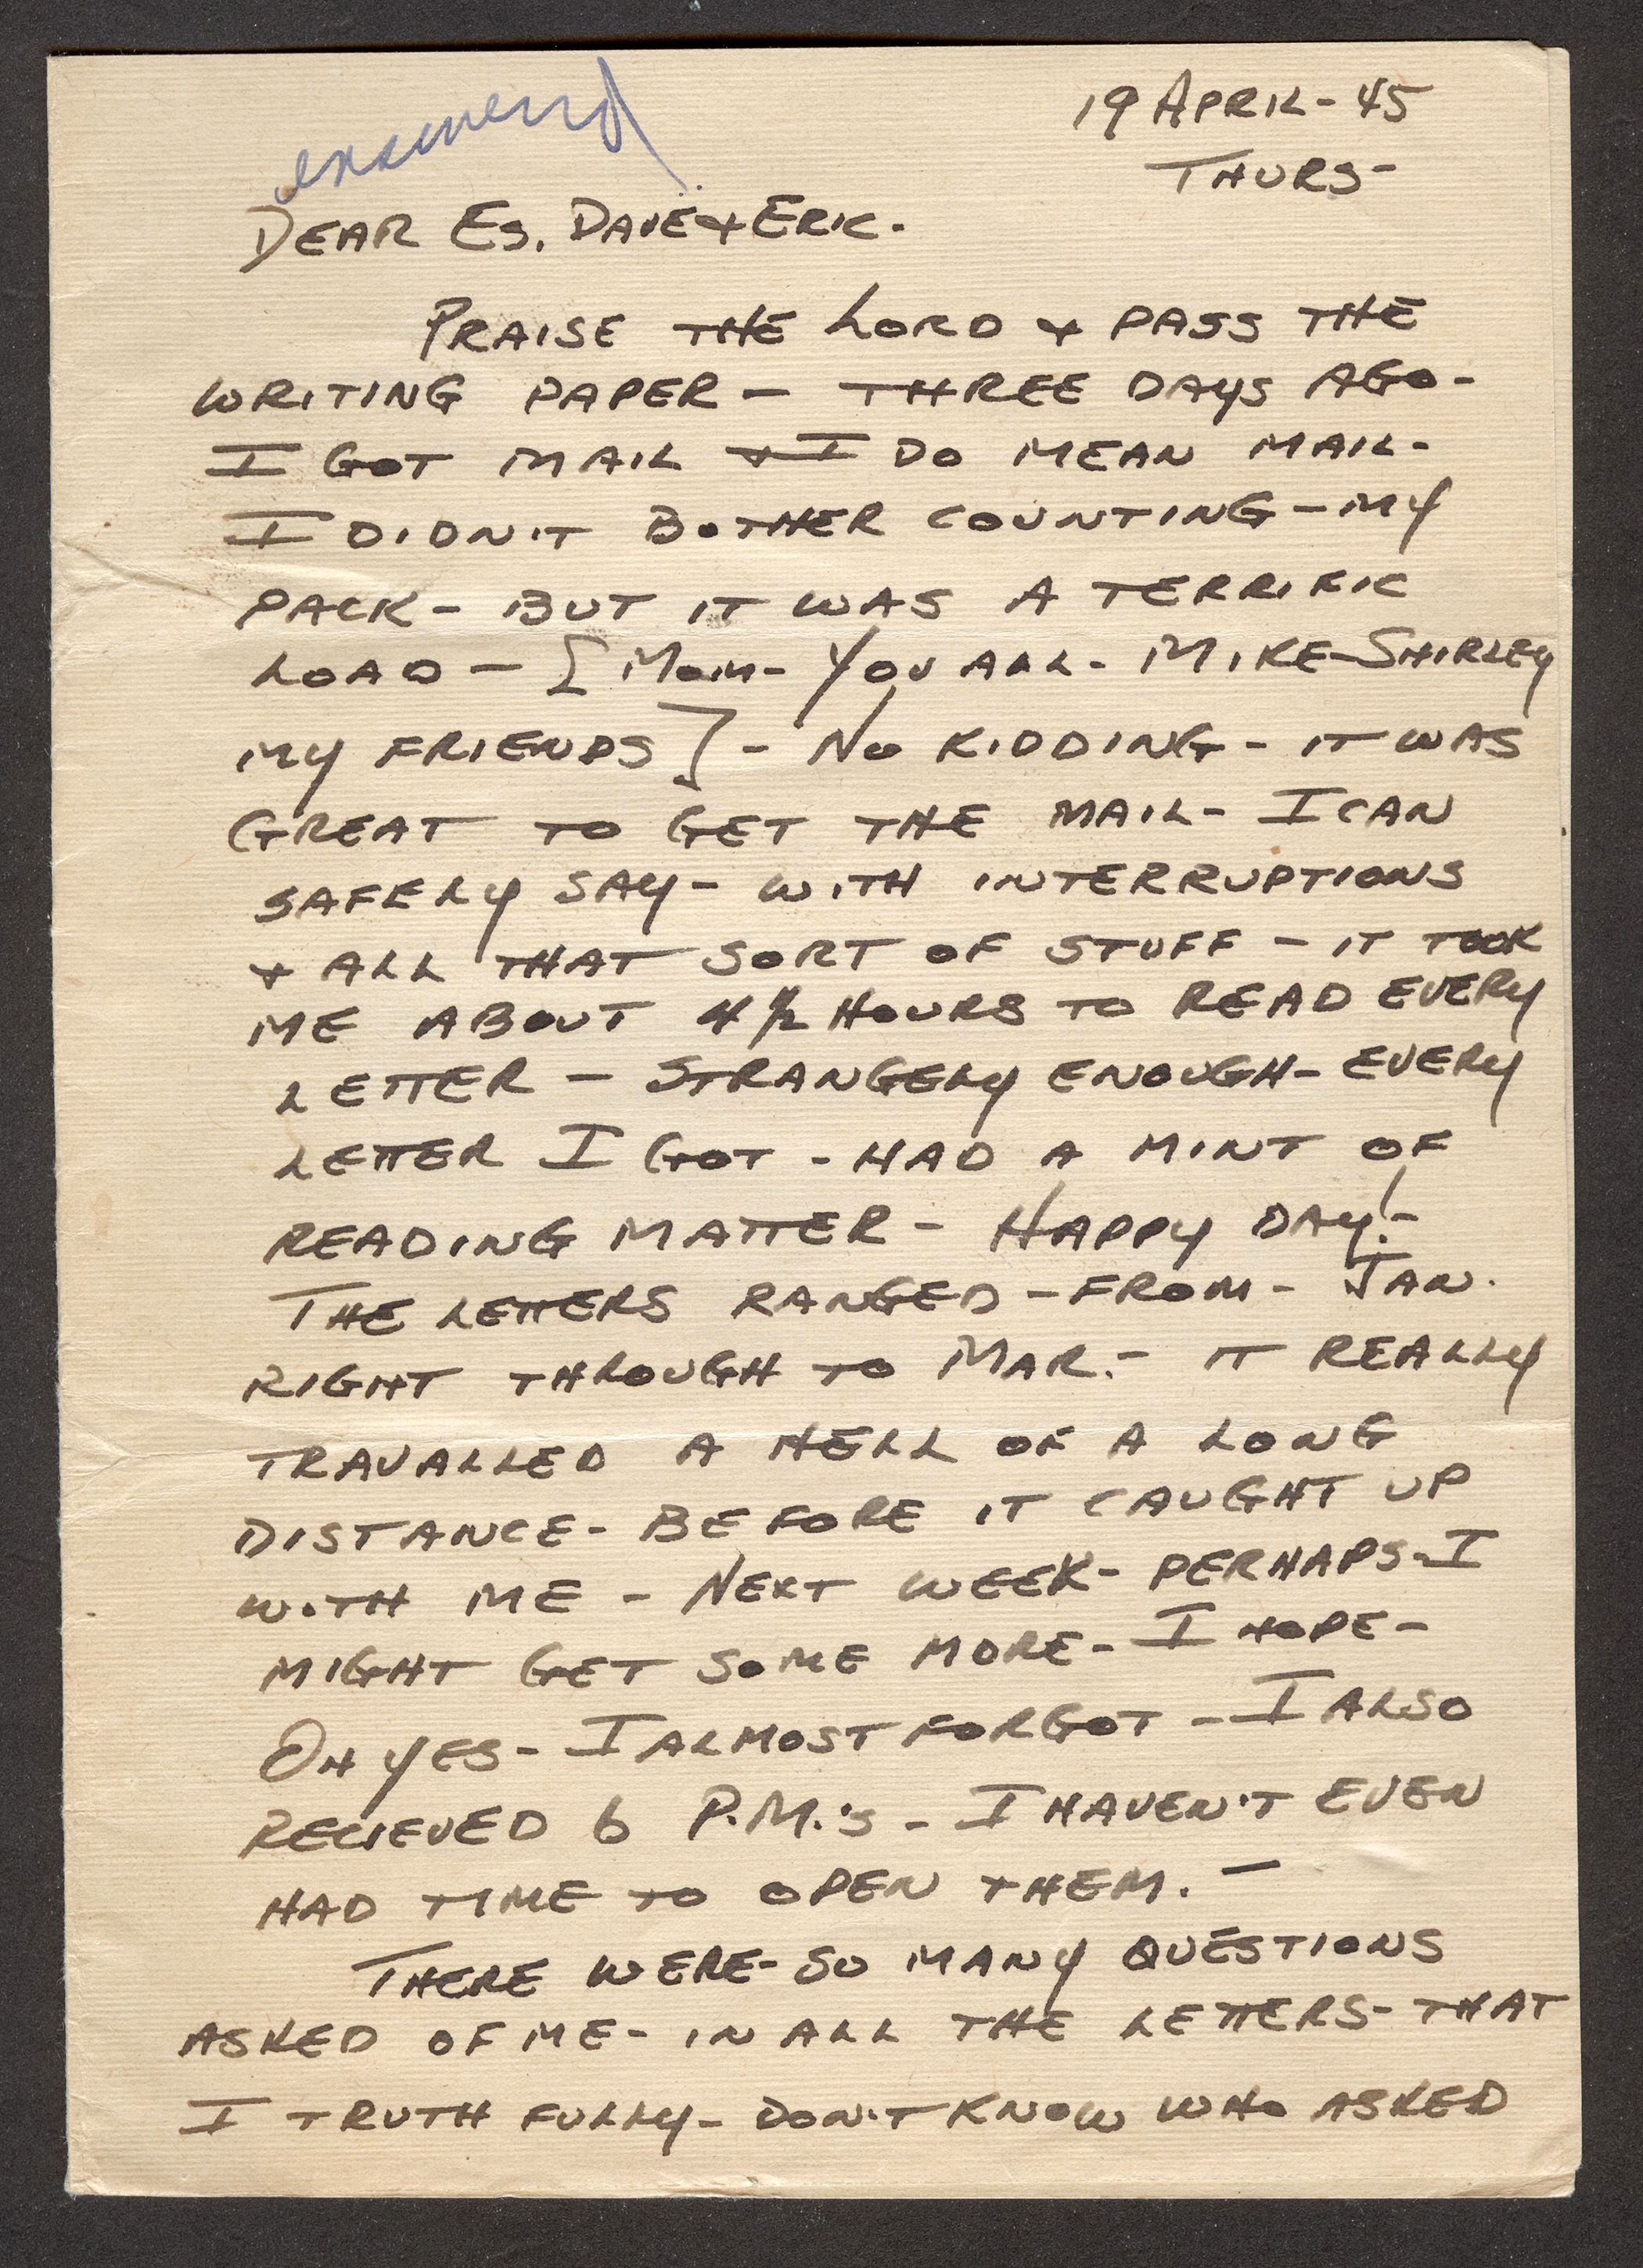 answered
19 APRIL - 45
THURS -
DEAR ES, DAVE & ERIC.
PRAISE THE LORD & PASS THE
WRITING PAPER - THREE DAYS AGO -
I GOT MAIL & I DO MEAN MAIL -
I DIDN'T BOTHER COUNTING - MY
PACK - BUT IT WAS A TERRIFIC
LOAD - [MOM - YOU ALL - MIKE - SHIRLEY
MY FRIENDS] - NO KIDDING - IT WAS
GREAT TO GET THE MAIL - I CAN
SAFELY SAY - WITH INTERRUPTIONS
& ALL THAT SORT OF STUFF - IT TOOK
ME ABOUT 4 1/2 HOURS TO READ EVERY
LETTER - STRANGELY ENOUGH - EVERY
LETTER I GOT - HAD A MINT OF
READING MATTER - HAPPY DAY! -
THE LETTERS RANGED - FROM - JAN.
RIGHT THROUGH TO MAR. - IT REALLY
TRAVALLED A HELL OF A LONG
DISTANCE - BEFORE IT CAUGHT UP
WITH ME - NEXT WEEK - PERHAPS - I
MIGHT GET SOME MORE - I HOPE -
OH YES - I ALMOST FORGOT - I ALSO
RECIEVED 6 P.M.'S - I HAVEN'T EVEN
HAD TIME TO OPEN THEM. -
THERE WERE - SO MANY QUESTIONS
ASKED OF ME - IN ALL THE LETTERS - THAT
I TRUTH FULLY - DON'T KNOW WHO ASKED